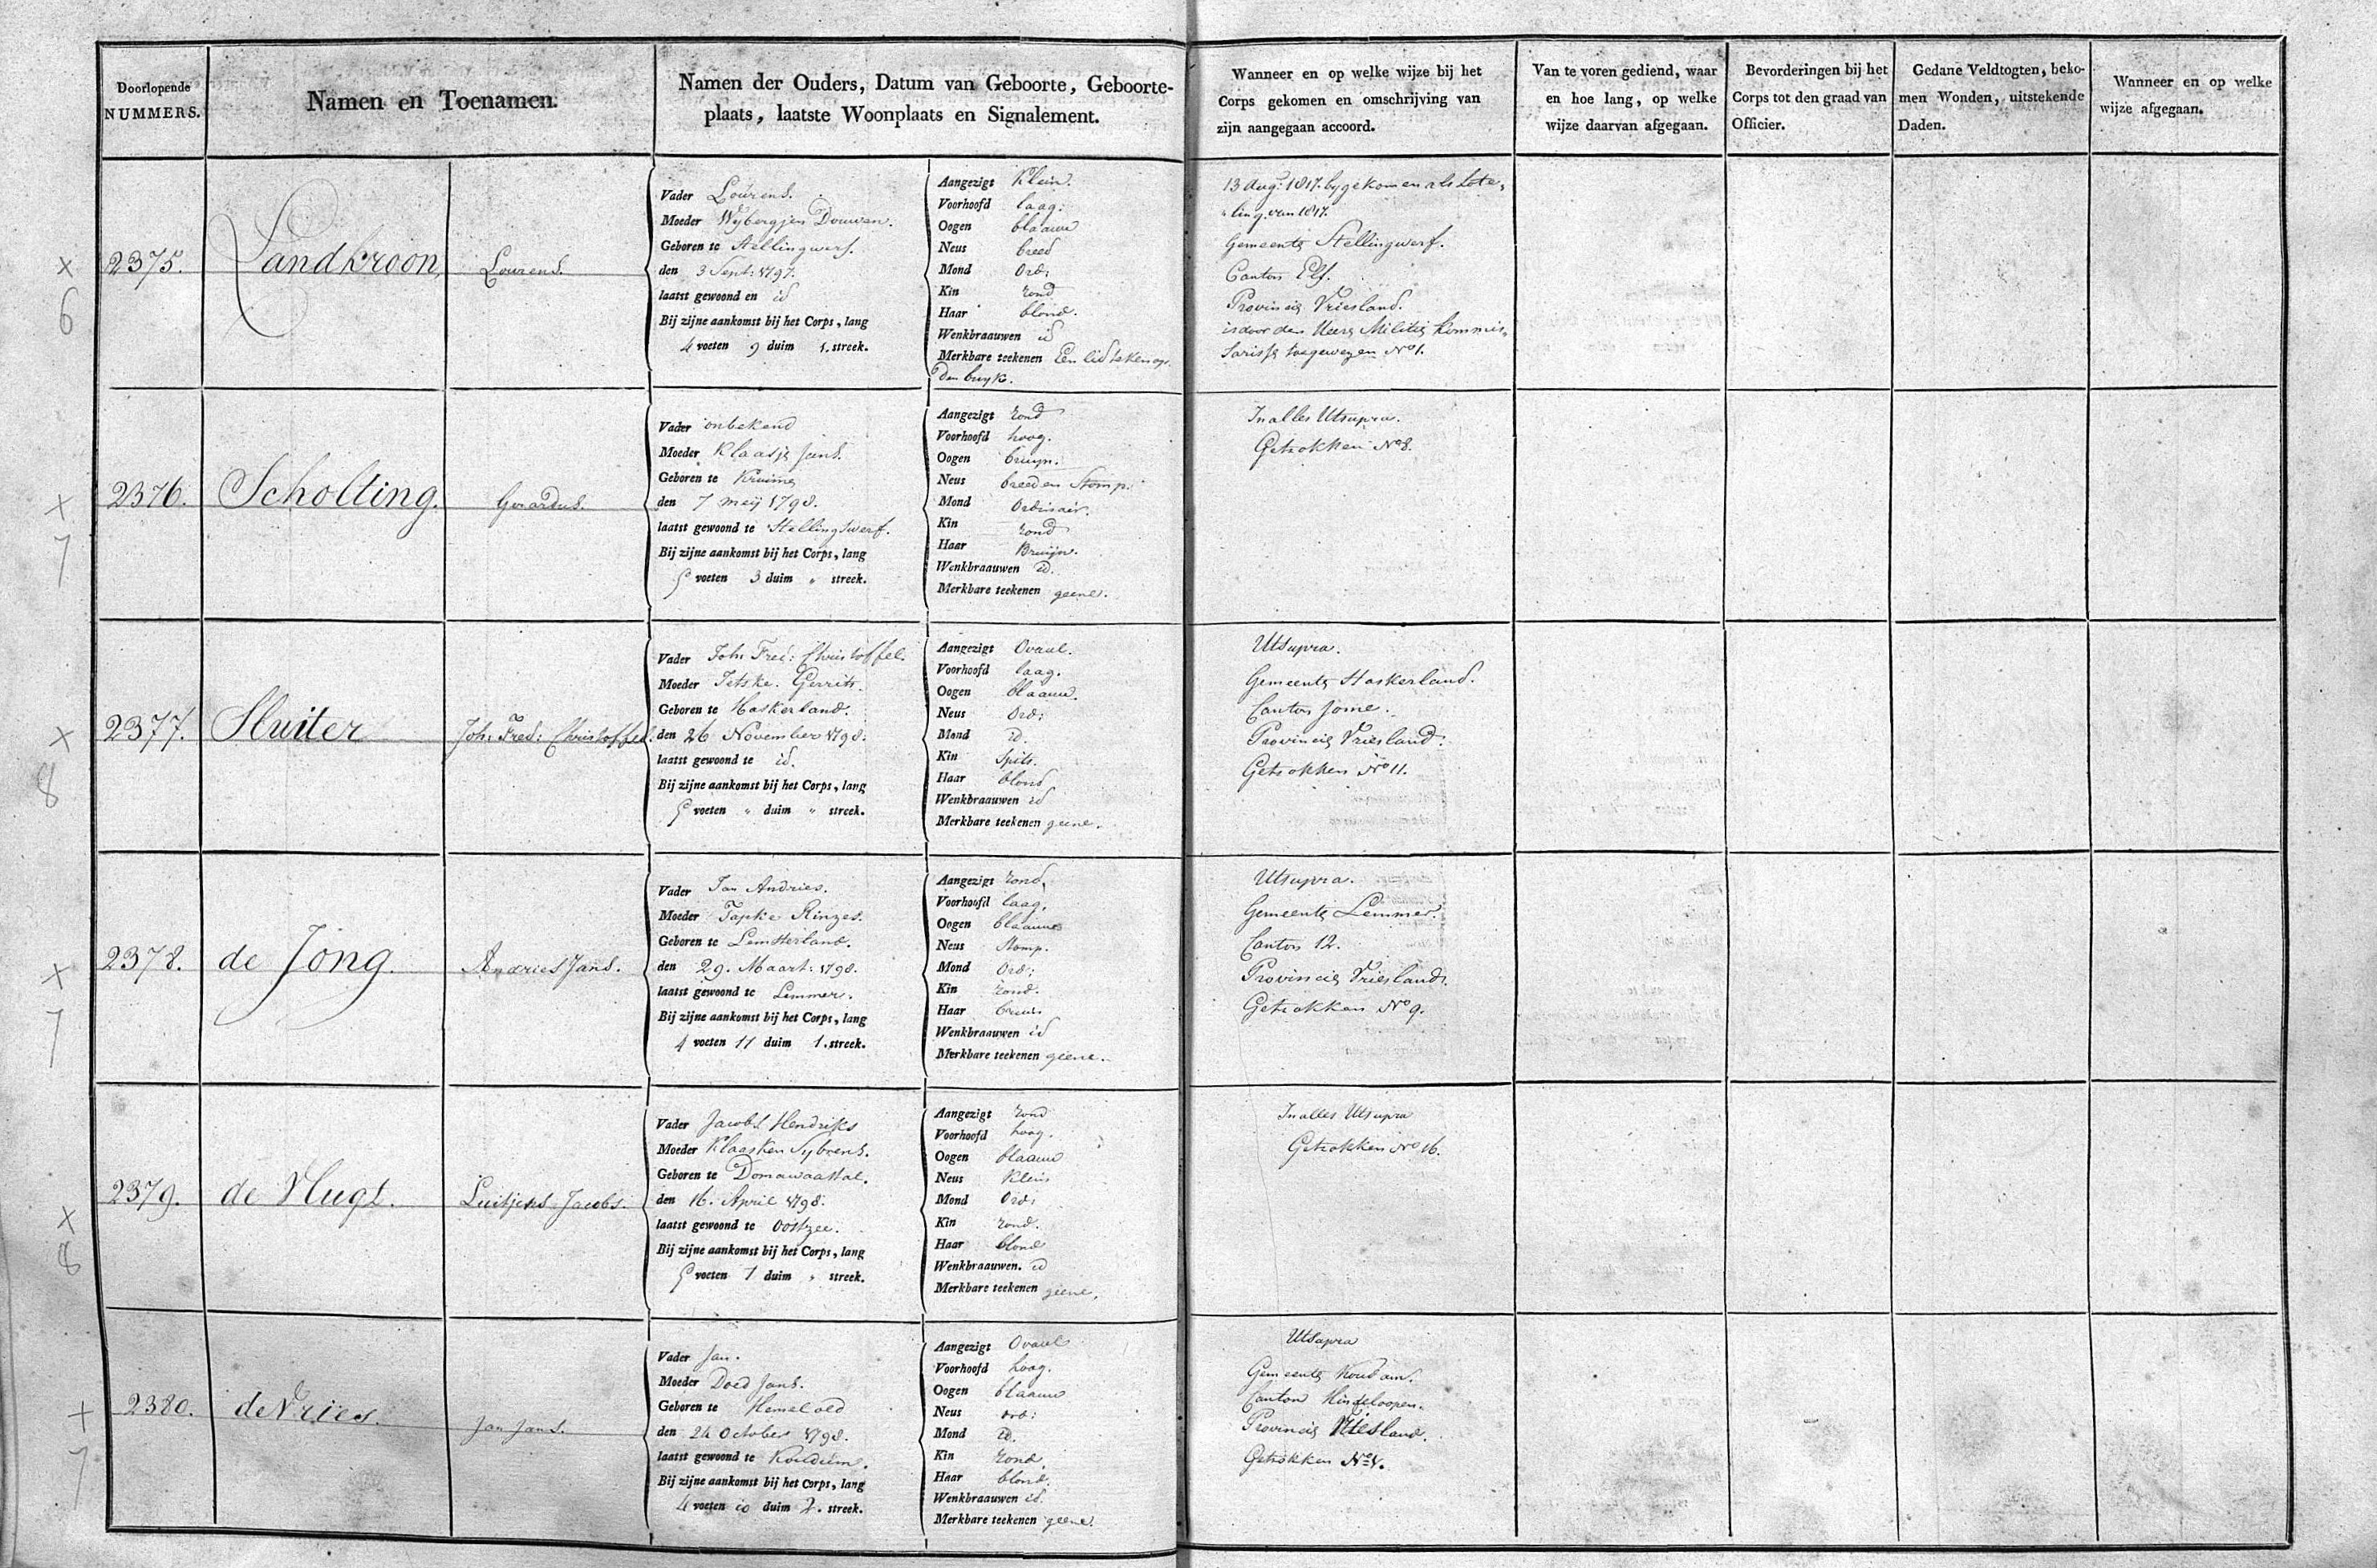 Doorlopende
NUMMERS.
Namen en Toenamen.
Namen der Ouders, Datum van Geboorte, Geboorte-
plaats, laatste Woonplaats en Signalement.
Wanneer en op welke wijze bij het
Corps gekomen en omschrijving van
zijn aangegaan accoord.
Van te voren gediend, waar
en hoe lang, op welke
wijze daarvan afgegaan.
Bevorderingen bij het
Corps tot den graad van
Officier.
Gedane Veldtogten, beko-
men Wonden, uitstekende
Daden.
Wanneer en op welke
wijze afgegaan.
x
6
2375.
Landkroon
Lourens.
Vader Lourens.
Moeder Wybergjen Douwen.
Geboren te Stellingwerf.
den 3 Sept: 1797.
laatst gewoond en id
Bij zijne aankomst bij het Corps, lang
4 voeten 9 duim 1. streek.
Aangezigt Klein.
Voorhoofd laag.
Oogen blaauw
Neus breed
Mond Ord:
Kin rond
Haar blond.
Wenkbraauwen id
Merkbare teekenen Een lidteken op
den buyk.
13 Aug: 1817. bygekomen als Lote„
„ling van 1817.
Gemeente Stellingwerf.
Canton Elf.
Provincie Vriesland.
is door den Heere Militie Kommis„
sarisse toegewezen No 1.
x
7
2376.
Scholting.
Gerardus.
Vader onbekend
Moeder Klaasje Jans.
Geboren te Kruine
den 7 meij 1798.
laatst gewoond te Stellingswerf.
Bij zijne aankomst bij het Corps, lang
5 voeten 3 duim „ streek.
Aangezigt rond
Voorhoofd hoog.
Oogen bruyn.
Neus breed en Stomp.
Mond Ordinair.
Kin rond
Haar Bruijn.
Wenkbraauwen id.
Merkbare teekenen geene.
In alles Utsupra.
Getrokken No 8.
x
8
2377.
Sluiter
Joh: Fred: Christoffel.
Vader Joh: Fred: Christoffel.
Moeder Jetske. Gerrits.
Geboren te Haskerland.
den 26 November 1798.
laatst gewoond te id.
Bij zijne aankomst bij het Corps, lang
5 voeten „ duim „ streek.
Aangezigt Ovaal.
Voorhoofd laag.
Oogen blaauw.
Neus Ord:
Mond id.
Kin Spits.
Haar blond
Wenkbraauwen id
Merkbare teekenen geene.
Utsupra.
Gemeente Haskerland.
Canton Joure.
Provincie Vriesland.
Getrokken No 11.
x
7
2378.
de Jong.
Andries Jans.
Vader Jan Andries.
Moeder Japke Rinzes.
Geboren te Lemsterland.
den 29. Maart: 1798.
laatst gewoond te Lemmer.
Bij zijne aankomst bij het Corps, lang
4 voeten 11 duim 1. streek.
Aangezigt rond.
Voorhoofd laag.
Oogen blaauw
Neus Stomp.
Mond Ord:
Kin rond.
Haar bruin
Wenkbraauwen id
Merkbare teekenen geene.
Utsupra.
Gemeente Lemmer.
Canton 12.
Provincie Vriesland.
Getrokken No 9.
x
8
2379.
de Vlugt.
Luitjens Jacobs.
Vader Jacobs Hendriks
Moeder Klaasken Sybrens.
Geboren te Doniawaastal.
den 16. April 1798.
laatst gewoond te Oostzee.
Bij zijne aankomst bij het Corps, lang
5 voeten 1 duim „ streek.
Aangezigt rond
Voorhoofd hoog.
Oogen blaauw
Neus Klein
Mond Ord:
Kin rond.
Haar blond
Wenkbraauwen. id
Merkbare teekenen geene.
In alles Utsupra
Getrokken No 16.
+
7
2380.
de Vries.
Jan Jans.
Vader Jan.
Moeder Doed Jans.
Geboren te Hemelold
den 24 October 1798.
laatst gewoond te Koudum.
Bij zijne aankomst bij het Corps, lang
4 voeten 10 duim 2. streek.
Aangezigt Ovaal
Voorhoofd hoog.
Oogen blaauw
Neus ord:
Mond id.
Kin rond.
Haar blond.
Wenkbraauwen id.
Merkbare teekenen geene.
Utsupra
Gemeente Koudum.
Canton Hindeloopen.
Provincie Vriesland.
Getrokken No